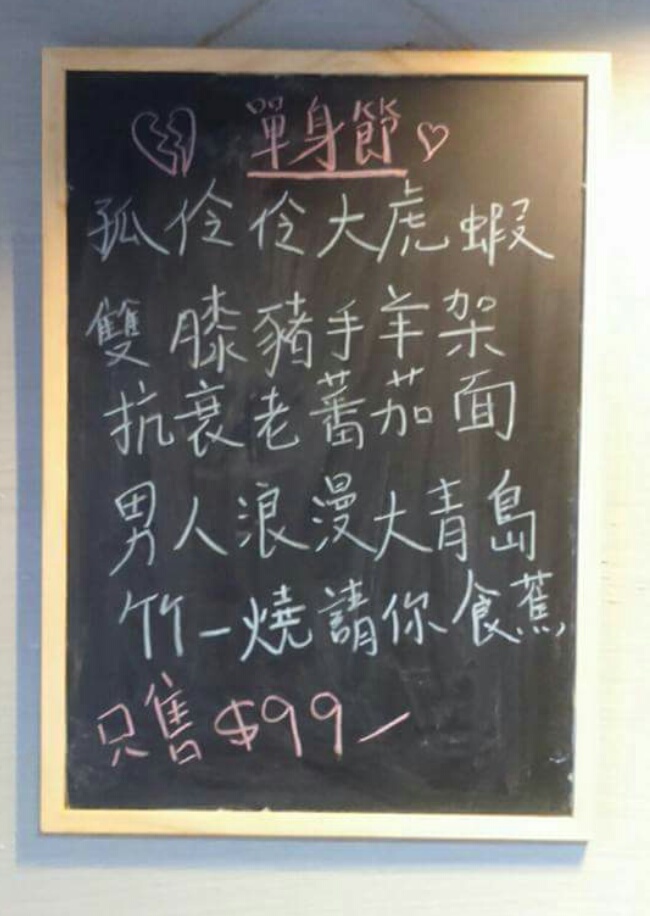 單身節
孤伶伶大虎蝦
雙膝豬手羊架
抗衰老蕃茄面
男人浪漫大青島
竹一燒請你食蕉
只售$99-